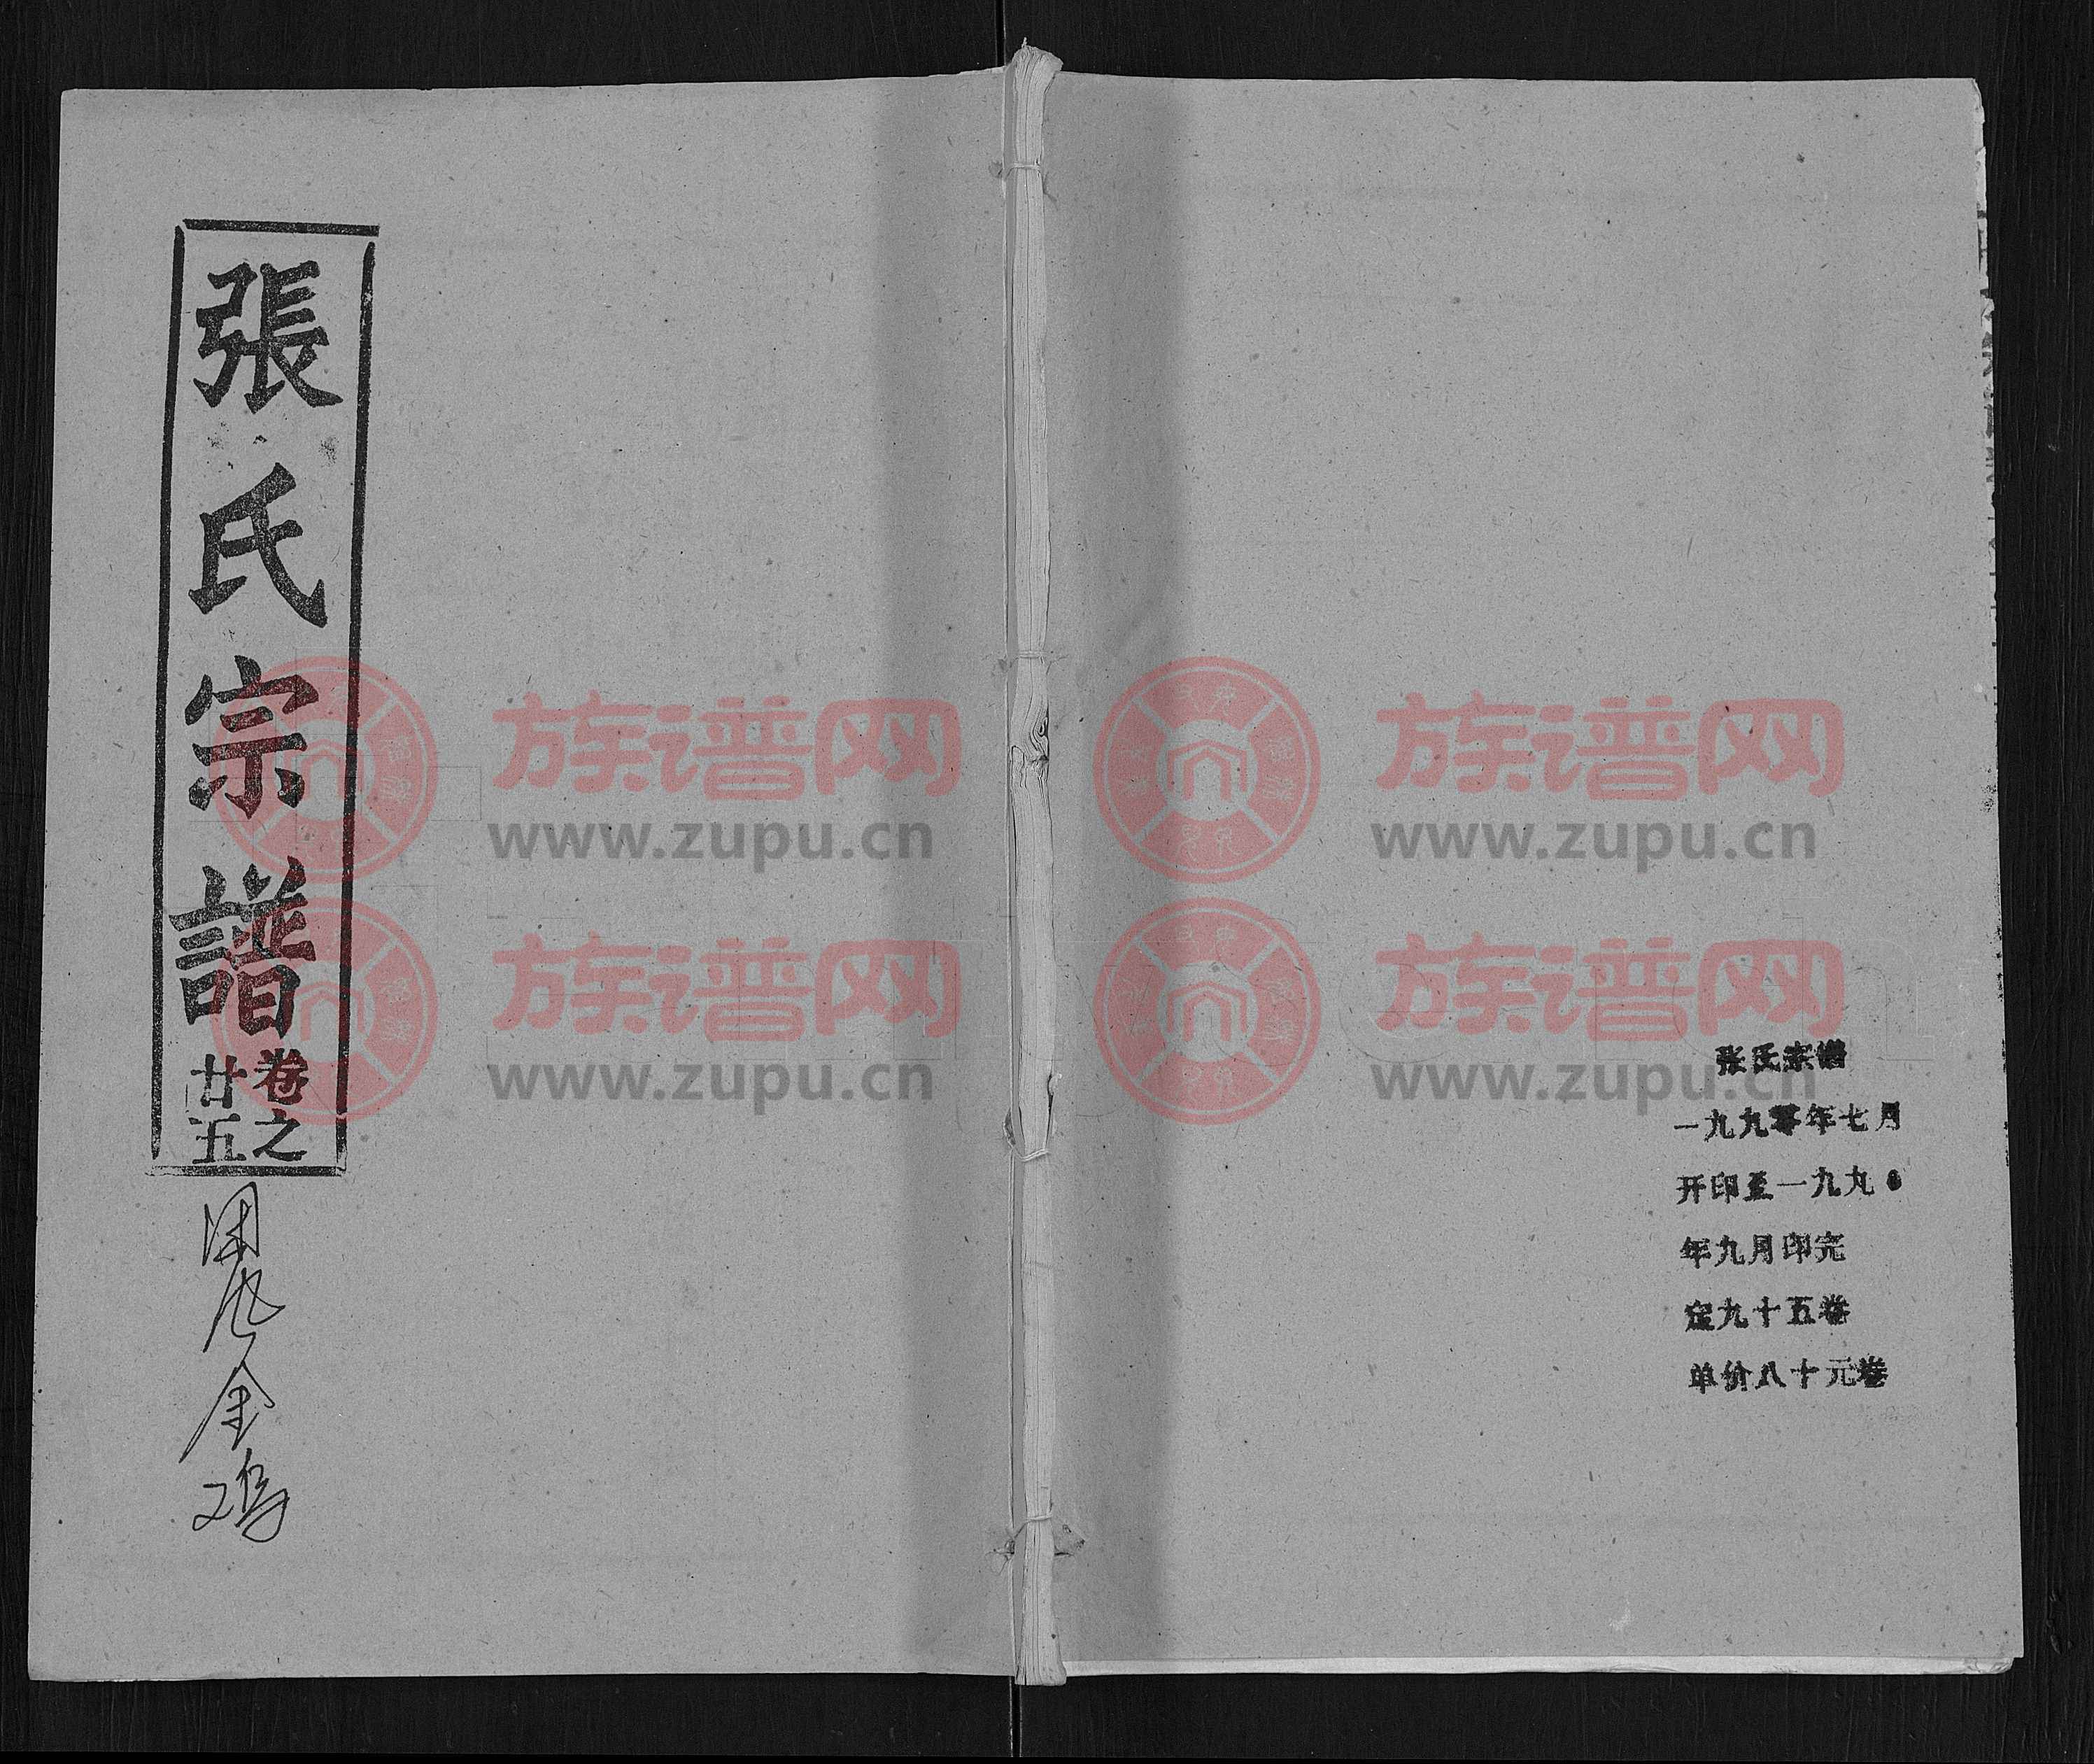 張氏宗譜
卷之
廿五
金
张氏宗谱
一九九零年七月
开印至一九九
年九月印完
定九十五卷
单价八十元卷
族谱网
www.zupu.cn
族谱网
www.zupu.cn
族谱网
www.zupu.cn
族谱网
www.zupu.cn